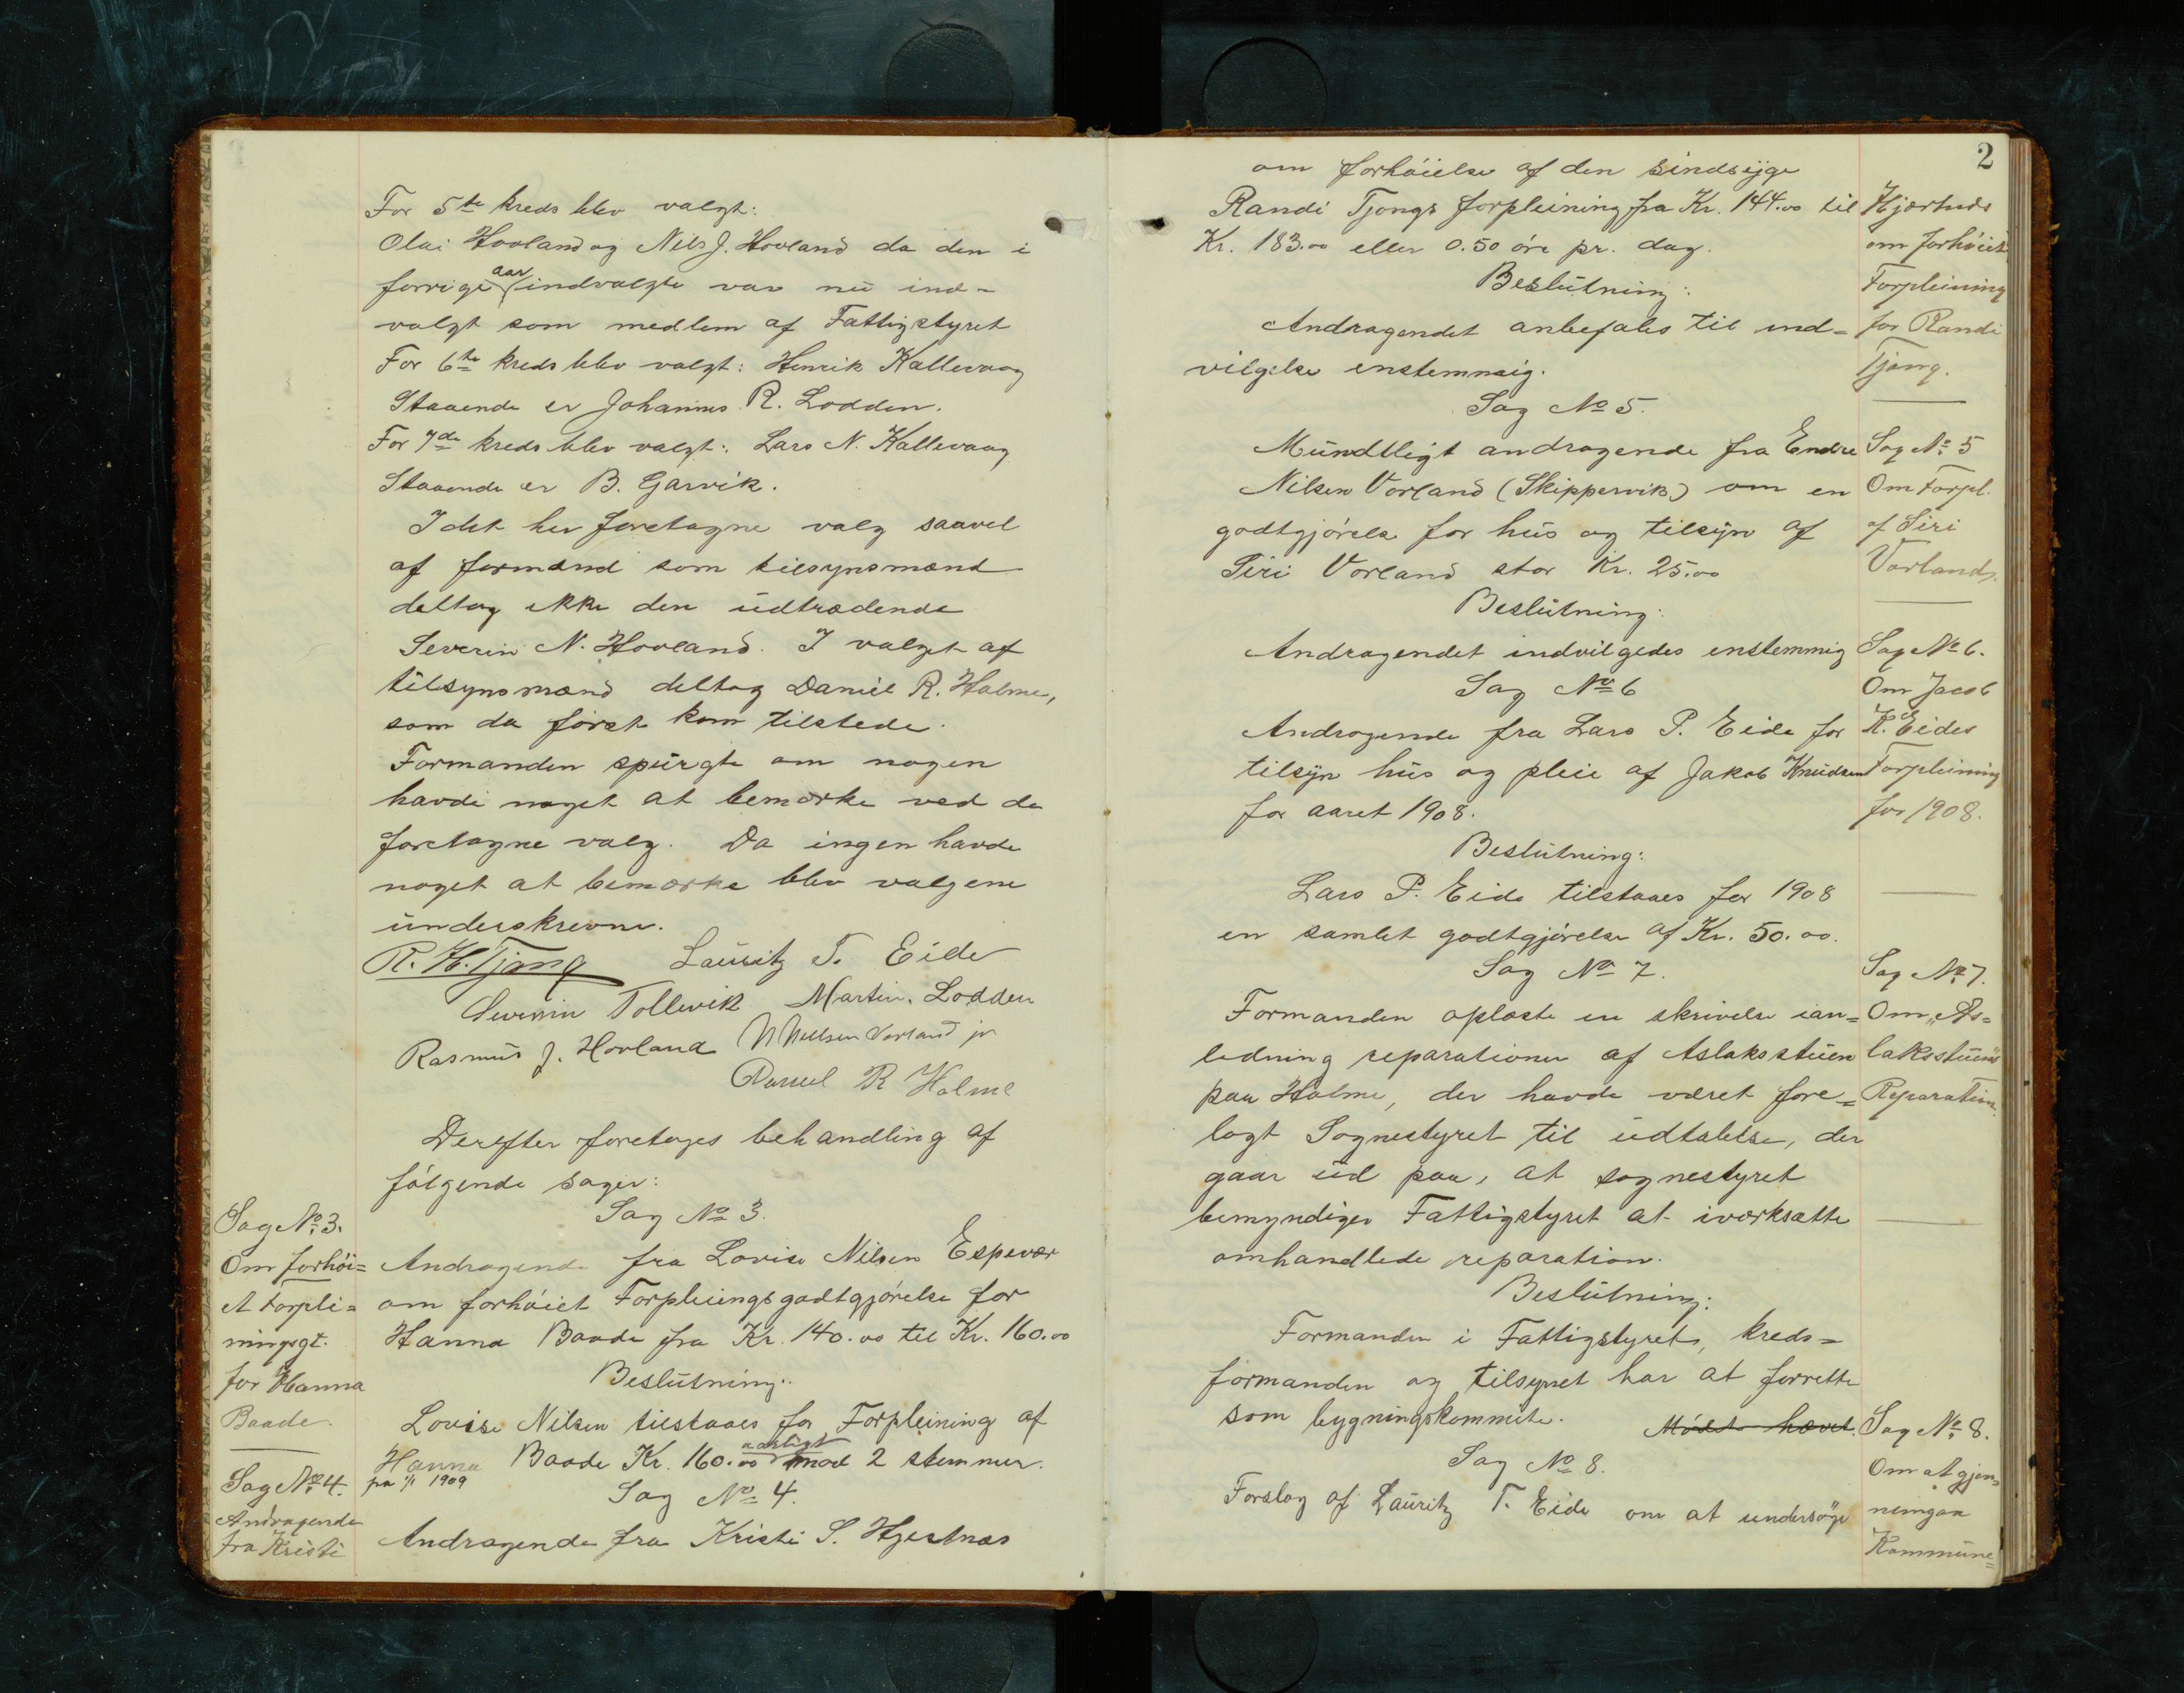 For 5te kreds blev valgt:
Olai Hovland og Nils J. Hovland da den i
forrige aar indvalgte var nu ind-
valgt som medlem af Fattigstyret
For 6te kreds blev valgt: Henrik Kallevaag
Staaende er Johannes R. Lodden.
For 7de kreds blev valgt: Lars N. Kallevaag
Staaende er B. Garvik.
I det her foretagne valg saavel
af formænd som tilsynsmænd
deltog ikke den udtrædende
Severin N. Hovland. I valget af
tilsynsmænd deltog Daniel R. Holme,
som da først kom tilstede.
Formanden spurgte om nogen
havde noget at bemærke ved de
foretagne valg. Da ingen havde
noget at bemærke blev valgene
underskrevne.
R. H. Tjong Lauritz T. Eide
Severin Tollevik Martin Lodden
Rasmus J. Hovland N Nilsen Vorland jr
Daniel R Holme
Derefter foretages behandling af
følgende sager:
Sag No 3.
Sag No 3.
Om forhöi=
et Forplei=
ningsgt.
for Hanna
Baade.
Andragende fra Lovise Nilsen Espevær
om forhøiet Forpleiingsgodtgjørelse for
Hanna Baade fra Kr. 140.00 til Kr. 160.00
Beslutning:
Lovise Nilsen tilstaaes for Forpleining af
Hanna Baade Kr. 160.00 aarligt mod 2 stemmer.
fra 1/1 1909
Sag No 4.
Sag No 4.
Andragende
fra Kristi
Andragende fra Kristi S. Hjertnæs
2
om forhøielse af den sindsyge
Randi Tjongs forpleining fra Kr. 144.00 til
Kr. 183.00 eller 0.50 øre pr. dag.
Hjærtnes
om forhöiet
Forpleining
for Randi
Tjong.
Beslutning:
Andragendet anbefales til ind=
vilgelse enstemmig.
Sag No 5.
Mundtligt andragende fra Endre
Nilsen Vorland (Skippervik) om en
godtgjørelse for hus og tilsyn af
Siri Vorland stor Kr. 25.00
Sag No 5
Om Forpl.
af Siri
Vorland.
Beslutning:
Andragendet indvilgedes enstemmig
Sag No 6
Andragende fra Lars P. Eide for
tilsyn hus og pleie af Jakob Knudsen
for aaret 1908.
Sag No 6.
Om Jacob
K. Eides
Forpleining
for 1908.
Beslutning:
Lars P. Eide tilstaaes for 1908
en samlet godtgjørelse af Kr. 50.00.
Sag No 7.
Formanden oplæste en skrivelse ian=
ledning reparationen af Aslaksstuen
paa Holme, der havde været fore=
lagt Sognestyret til udtalelse, der
gaar ud paa, at sognestyret
bemyndiger Fattigstyret at iværksætte
omhandlede reparation.
Sag No 7.
Om „As=
laksstuens"
Reparation.
Beslutning:
Formanden i Fattigstyret, kreds=
formanden og tilsynet har at forrette
som bygningskommite. Mödet hævet.
Sag No 8.
Forslag af Lauritz T. Eide om at undersöge
Sag No 8.
Om at gjen=
nemgaa
Kommune=